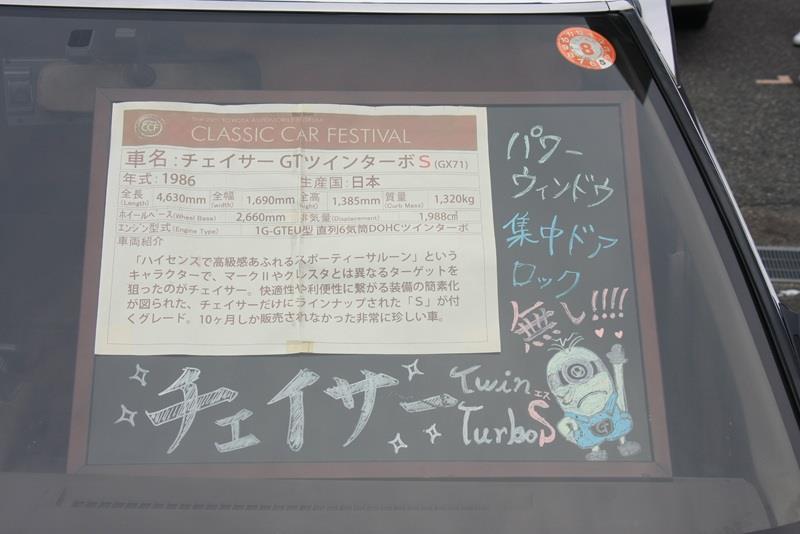 CCF
CLASSIC CAR FESTIVAL
車名：チェイサー GTツインターボS (GX71)
年式：1986 生産国：日本
全長 (Length) 4,630mm 全幅 (width) 1,690mm 全高 1,385mm 質量 (Curb Mass) 1,320kg
ホイールベース(Wheel Base) 2,660mm 排気量(Displacement) 1,988㎤
エンジン型式(Engine Type) 1G-GTEU型 直列6気筒DOHCツインターボ
車両紹介
「ハイセンスで高級感あふれるスポーティーサルーン」という
キャラクターで、マークⅡやクレスタとは異なるターゲットを
狙ったのがチェイサー。快適性や利便性に繋がる装備の簡素化
が図られた、チェイサーだけにラインナップされた「S」が付
くグレード。10ヶ月しか販売されなかった非常に珍しい車。
パワー
ウィンドウ
集中ドア
ロック
無し!!!!
チェイサー
Twin
エス
TurboS
GT
8